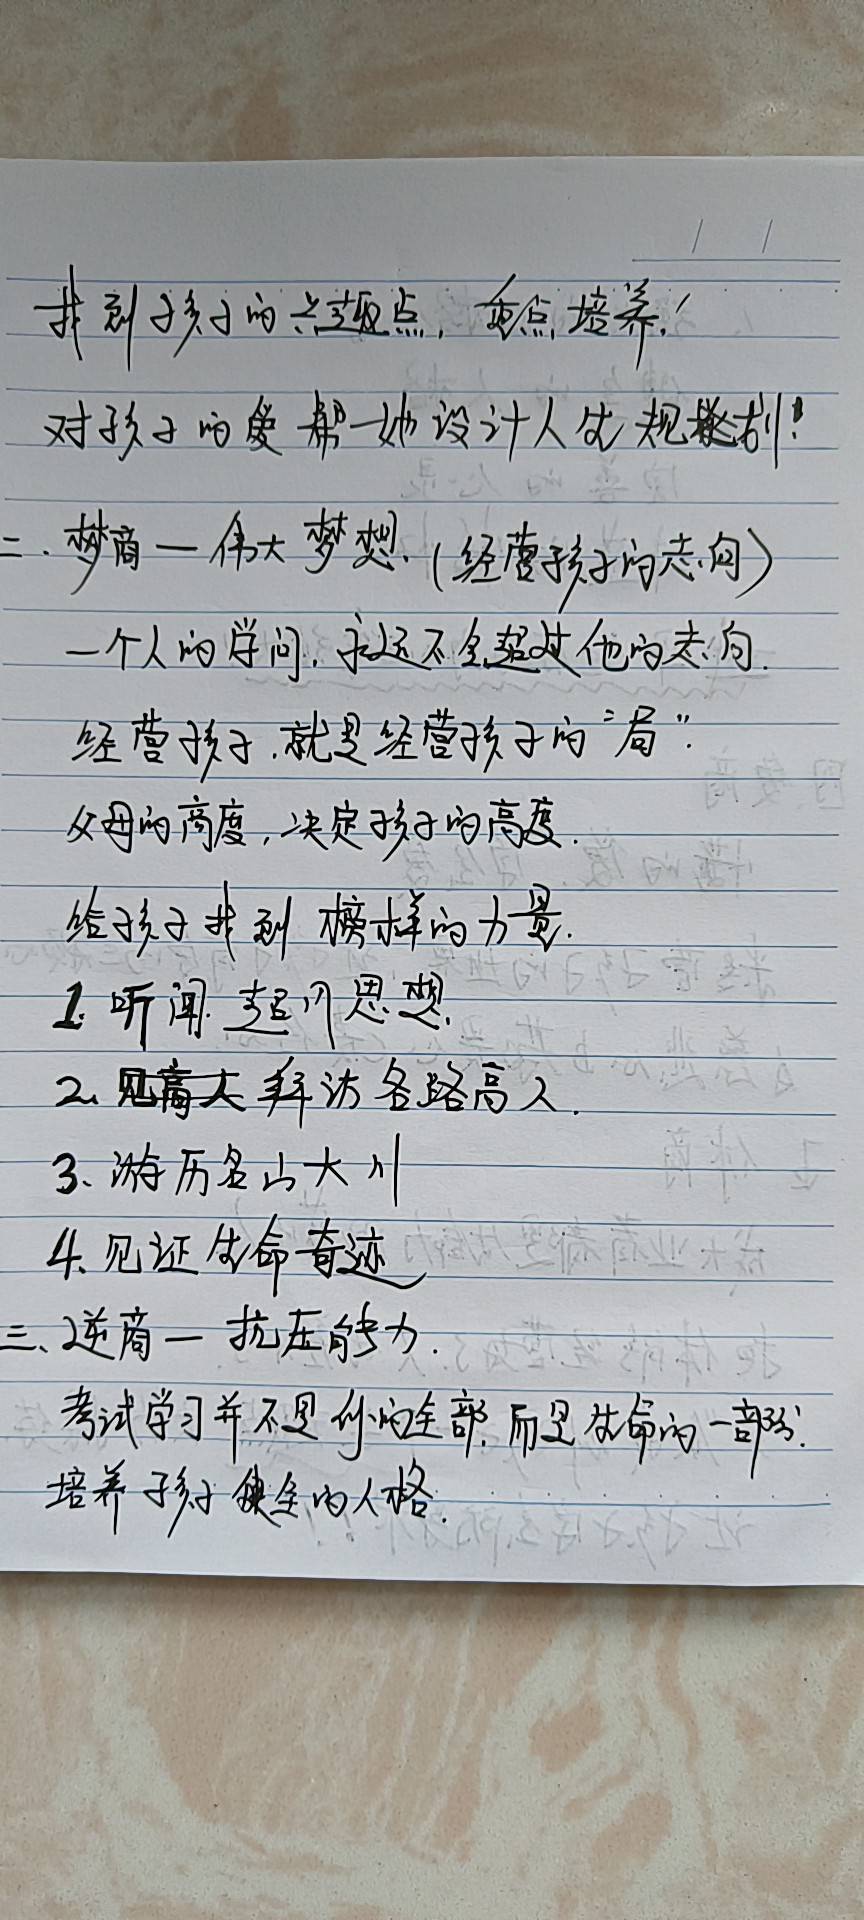 找到孩子的兴趣点，重点培养！
对孩子的爱帮她设计人生规划！
二、梦商—伟大梦想.（经营孩子的志向）
一个人的学问，永远不会超过他的志向.
经营孩子，就是经营孩子的“局”.
父母的高度，决定孩子的高度.
给孩子找到榜样的力量.
1. 听闻 超凡思想.
2. 拜访各路高人.
3、游历名山大川
4、见证生命奇迹
三、逆商—抗压能力.
考试学习并不是你的全部，而是生命的一部分.
培养孩子健全的人格.